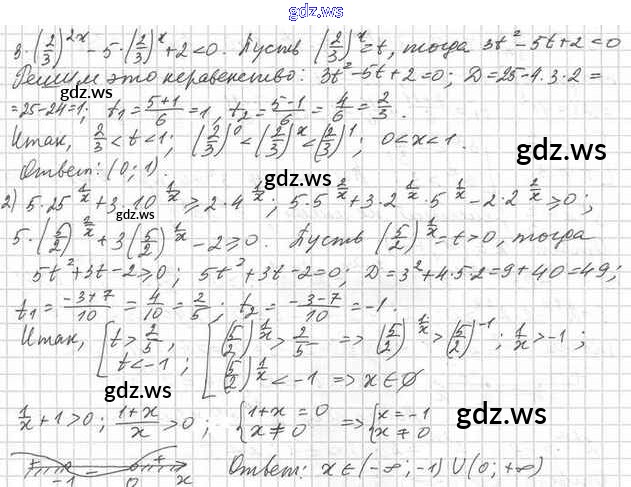 gdz.ws
3·(2/3)^{2x} − 5·(2/3)^x + 2 < 0. Пусть (2/3)^x = t, тогда 3t² − 5t + 2 < 0
Решим это неравенство: 3t² − 5t + 2 = 0; D = 25 − 4·3·2 =
gdz.ws
= 25 − 24 = 1; t₁ = (5+1)/6 = 1, t₂ = (5−1)/6 = 4/6 = 2/3.
Итак, 2/3 < t < 1; (2/3)^0 < (2/3)^x < (2/3)^1; 0 < x < 1.
gdz.ws
Ответ: (0; 1).
gdz.ws
2) 5·25^{1/x} + 3·10^{1/x} ⩾ 2·4^{1/x}; 5·5^{2/x} + 3·2^{1/x}·5^{1/x} − 2·2^{2/x} ⩾ 0;
gdz.ws
5·(5/2)^{2/x} + 3(5/2)^{1/x} − 2 ⩾ 0. Пусть (5/2)^{1/x} = t > 0, тогда
5t² + 3t − 2 ⩾ 0; 5t² + 3t − 2 = 0; D = 3² + 4·5·2 = 9 + 40 = 49;
t₁ = (−3+7)/10 = 4/10 = 2/5; t₂ = (−3−7)/10 = −1.
Итак, [t > 2/5, t < −1; [(5/2)^{1/x} > 2/5 => (5/2)^{1/x} > (5/2)^{−1}; 1/x > −1;
(5/2)^{1/x} < −1 => x ∈ ∅
gdz.ws
1/x + 1 > 0; (1+x)/x > 0; {1+x = 0, x ≠ 0 => {x = −1, x ≠ 0
gdz.ws
+ −1 − 0 + x Ответ: x ∈ (−∞; −1) ∪ (0; +∞)
gdz.ws